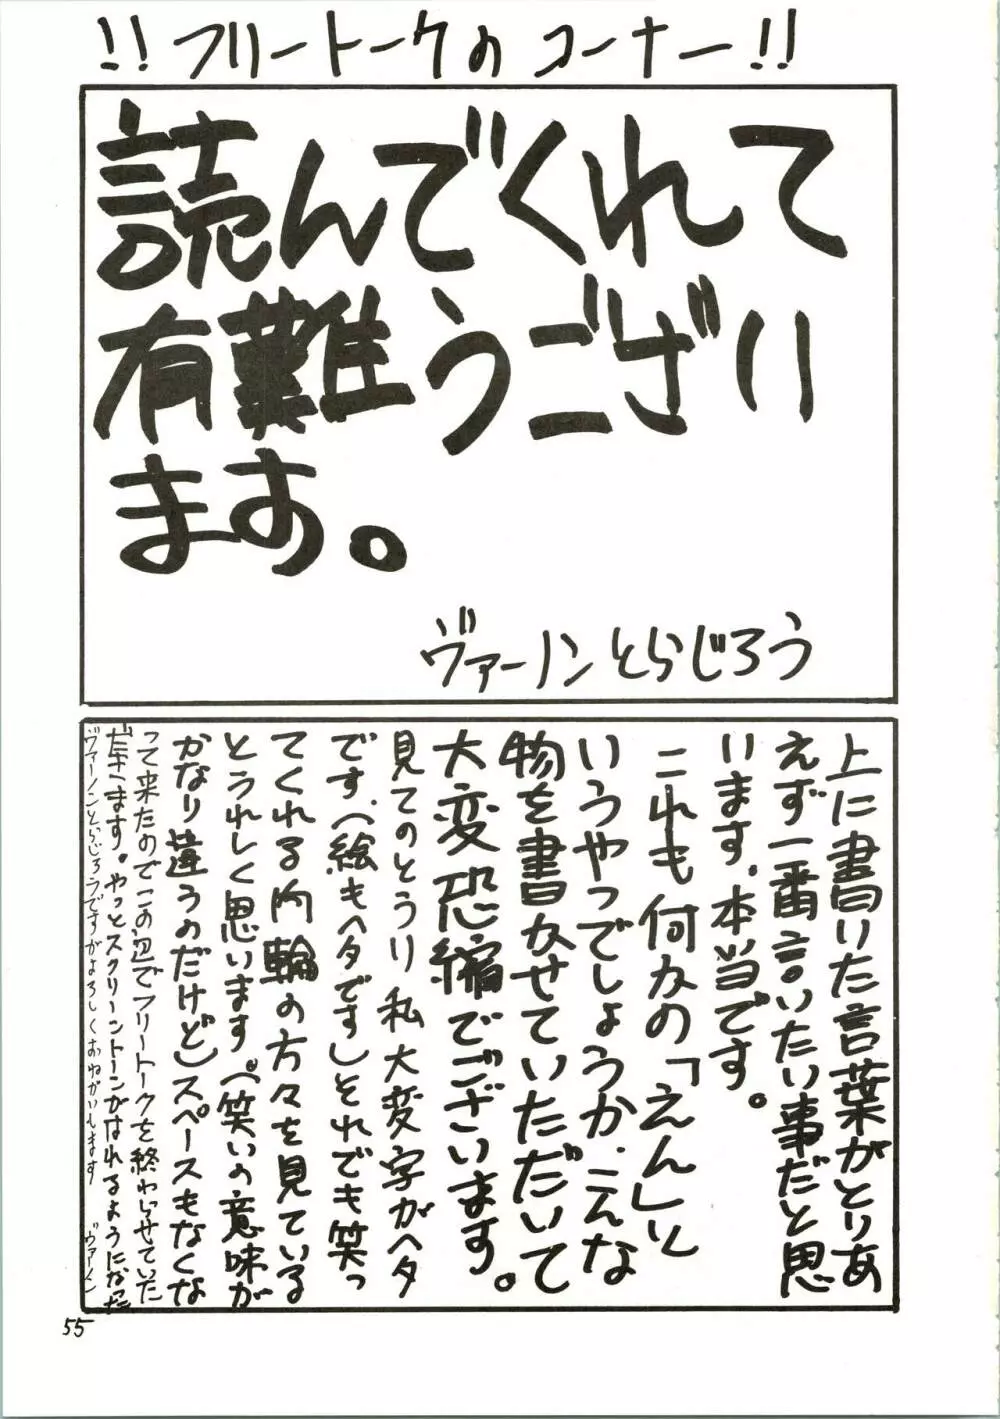 !! フリートークの コーナー!!
読んでくれて
有難うござい
ます。
ヴァーノンとらじろう
上に書いた言葉がとりあ
えず一番言いたい事だと思
います。本当です。
これも何かの「えん」と
いうやつでしょうか。こんな
物を書かせていただいて
大変恐縮でございます。
見てのとうり私大変字がヘタ
です。(絵もヘタです)それでも笑っ
てくれる内輪の方々を見ている
とうれしく思います。(笑いの意味が
かなり違うのだけど)スペースもなくな
って来たのでこの辺でフリートークを終わらせていた
だきます。やっとスクリーントーンがはれるようになった
ヴァーノンとらじろうですがよろしくおねがいします ヴァーノン
55